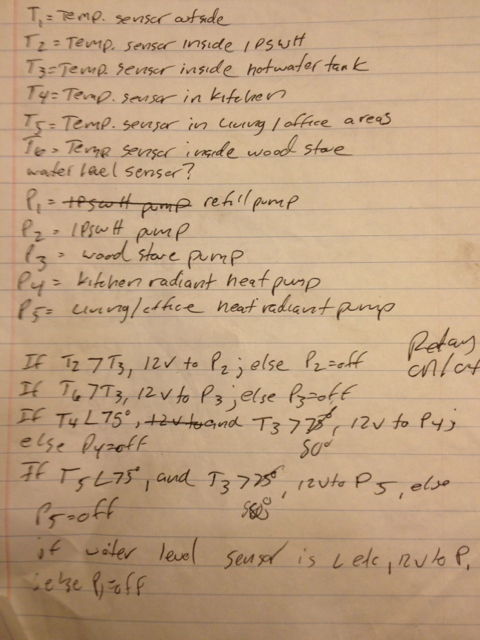 T1 = Temp. sensor outside
T2 = Temp. sensor inside IPSWH
T3 = Temp. sensor inside hotwater tank
T4 = Temp. sensor in kitchen
T5 = Temp. sensor in living/office areas
T6 = Temp sensor inside wood stove
water level sensor?
P1 = IPSWH pump refill pump
P2 = IPSWH pump
P3 = wood stove pump
P4 = kitchen radiant heat pump
P5 = living/office heat radiant pump
If T2 > T3, 12v to P2; else P2=off
Relay
If T6 > T3, 12v to P3; else P3=off
If T4 < 75°, 12v to and T3 > 75°, 12v to P4;
else P4=off 80°
If T5 < 75°, and T3 > 75°, 12v to P5, else
P5=off 80°
if water level sensor is L etc, 12v to P1
;else P1=off